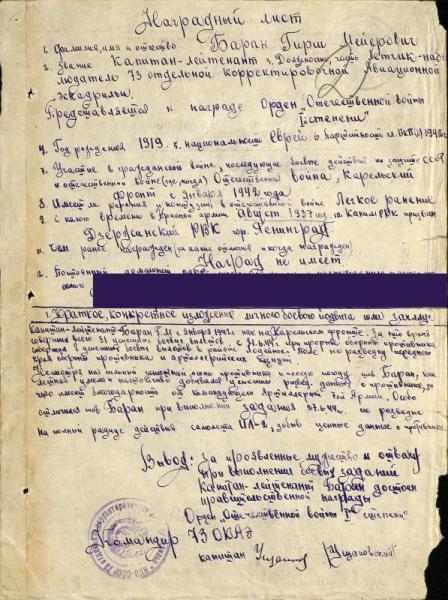 Наградный лист
1. Фамилия, имя и отчество Баран Гирш Мейерович
2. Звание Капитан-лейтенант 3. Должность, часть Летчик-наб-
людатель 73 отдельной корректировочной Авиационной
эскадрильи.
Представляется к награде Орден „Отечественной войны
I степени"
4. Год рождения 1919. 5. национальность еврей 6. партийность
7. Участие в гражданской войне, последующие боевые действия по защите СССР
и отечественной войне (где, когда) Отечественная война, Карельский
фронт с Января 1942 года
8. Имеет ли ранения и контузии в отечественной войне Легкое ранение
9. С какого времени в Красной армии Август 1937 год 10. Каким РВК призван
Дзержинский РВК гор. Ленинград
11. Чем ранее награжден (за какие отличия и когда награжден)
Наград не имеет
12. Постоянный домашний
семьи
1. Краткое, конкретное изложение личного боевого подвига или заслуг
Капитан-лейтенант Баран Г.М. с января 1942 г. на Карельском фронте. За это время
совершил всего 31 боевых вылетов. 21.6.44 г. при прорыве обороны противника
совершил боевых вылета в районе Лодейное-Поле на разведку переднего
края обороны противника и артиллерийских
Несмотря на сильный зенитный огонь противника и плохую погоду тов Баран, как
умело и настойчиво добивался развед. данных о противнике, за
что имеет благодарность от командующего Артиллерией 7ой Армии. Особо
отличился тов Баран при выполнении задания 27.6.44 г. по разведке
на полный радиус действия самолета ИЛ-2, добыв ценные данные о противнике.
Вывод: За проявленные мужество и отвагу
при выполнении боевых заданий
Капитан-лейтенант Баран достоен
правительственной награды
Орден „Отечественной войны Iой степени"
Командир 73 ОКАЭ
капитан